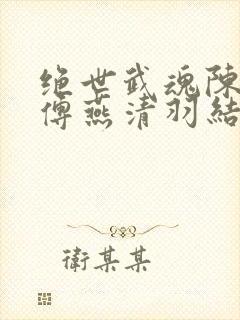 绝世武魂陳
傅燕清羽結
衛某某